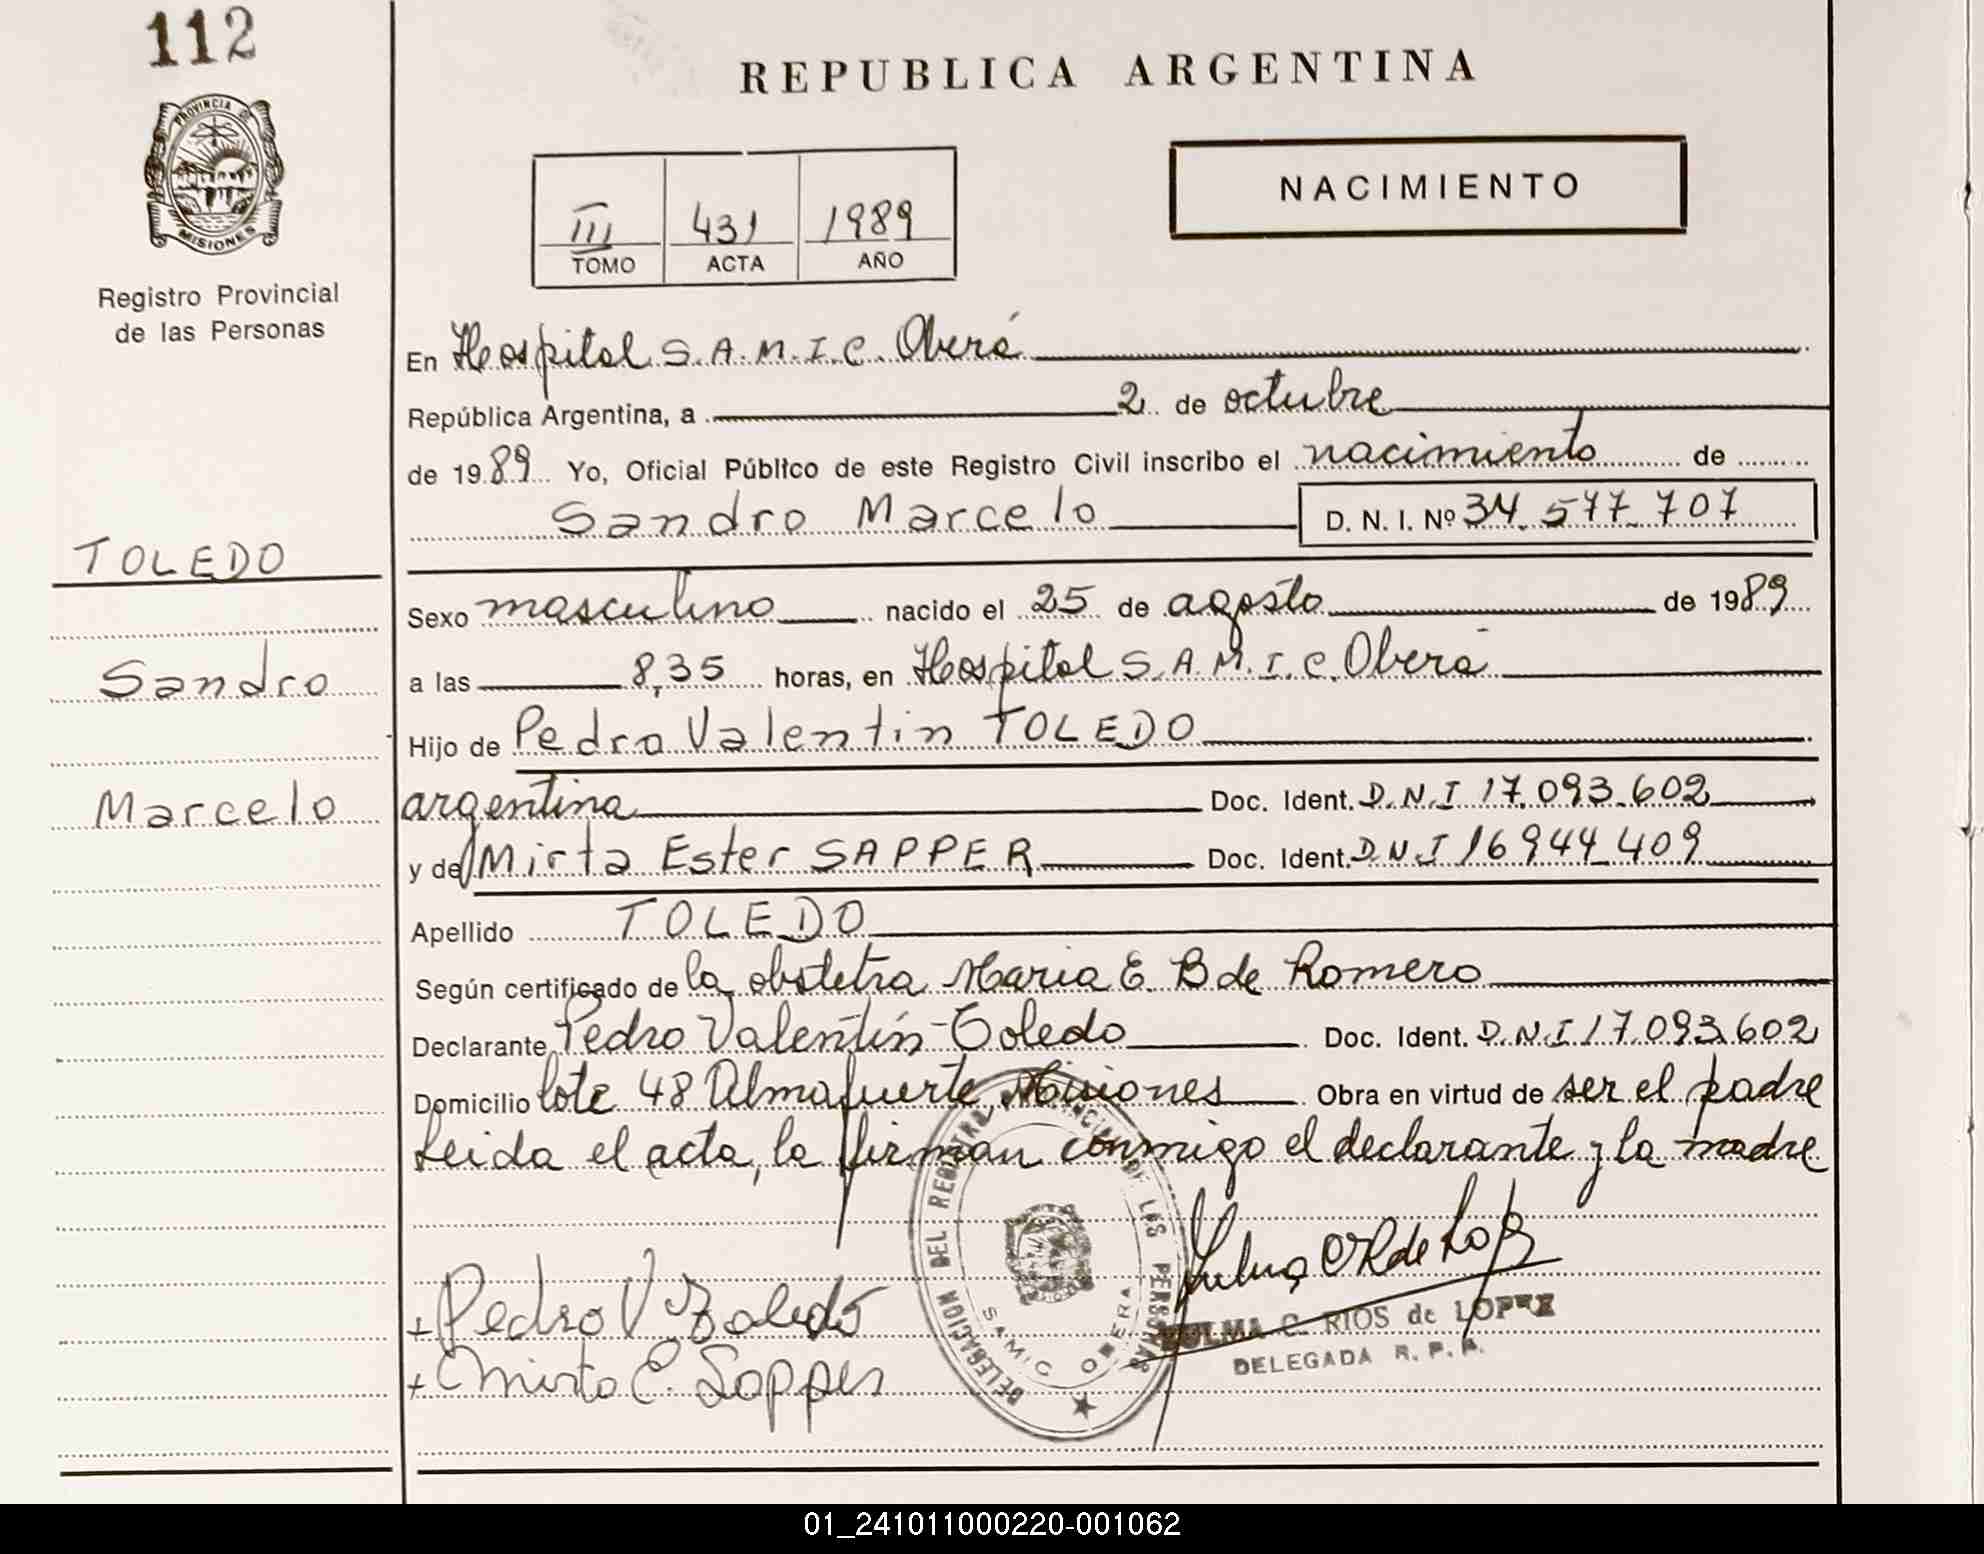 112
PROVINCIA DE
MISIONES
Registro Provincial
de las Personas
TOLEDO
Sandro
Marcelo
REPUBLICA ARGENTINA
NACIMIENTO
III 431 1989
TOMO ACTA AÑO
En Hospital S.A.M.I.C. Oberá
República Argentina, a 2 de octubre
de 1989 Yo, Oficial Público de este Registro Civil inscribo el nacimiento de
Sandro Marcelo D. N. I. Nº 34.577.707
Sexo masculino nacido el 25 de agosto de 1989
a las 8,35 horas, en Hospital S.A.M.I.C. Oberá
Hijo de Pedro Valentin TOLEDO
argentina Doc. Ident. D.N.I 17.093.602
y de Mirta Ester SAPPER Doc. Ident. D.N.I 16944409
Apellido TOLEDO
Según certificado de la obstetra Maria E. B de Romero
Declarante Pedro Valentín Toledo Doc. Ident. D.N.I 17.093.602
Domicilio lote 48 Almafuerte, Misiones Obra en virtud de ser el padre
Leida el acta, la firman conmigo el declarante y la madre
+ Pedro V Toledo
+ Mirta E. Sapper
DELEGACION DEL REGISTRO PROVINCIAL DE LAS PERSONAS
SAMIC OBERA
ZULMA C. RIOS de LOPEZ
DELEGADA R. P. P.
01_241011000220-001062